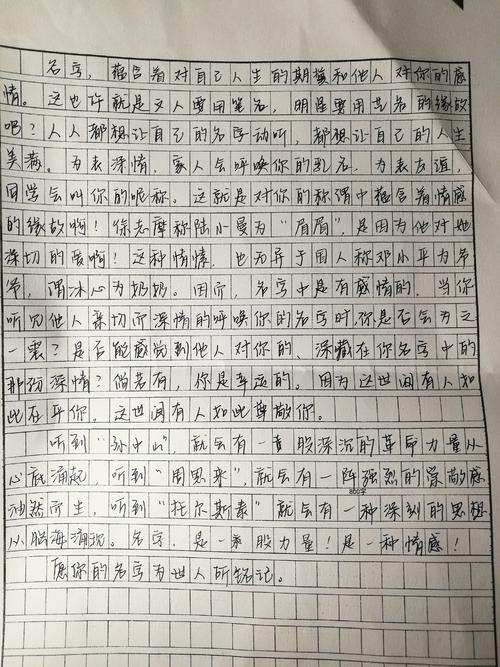 名字，蕴含着对自己人生的期望和他人对你的感
情。这也许就是文人要用笔名，明星要用艺名的缘故
吧？人人都想让自己的名字动听，都想让自己的人生
美满。为表深情，家人会呼唤你的乳名，为表友谊，
同学会叫你的昵称。这就是对你的称谓中蕴含着情感
的缘故啊！徐志摩称陆小曼为“眉眉”，是因为他对她
深切的爱啊！这种情愫，也不异于用人称邓小平为爷
爷，谓冰心为奶奶。因而，名字中是有感情的，当你
听见他人亲切而深情的呼唤你的名字时，你是否会为之
一震？是否能感觉到他人对你的、深藏在你名字中的
那份深情？倘若有，你是幸运的。因为这世间有人如
此在乎你。这世间有人如此尊敬你。
听到“孙中山”，就会有一股深沉的革命力量从
心底涌起，听到“周恩来”，就会有一阵强烈的崇敬感
油然而生，听到“托尔斯泰”就会有一种深刻的思想
800字
从脑海涌现。名字，是一股力量！是一种情感！
愿你的名字为世人所铭记。